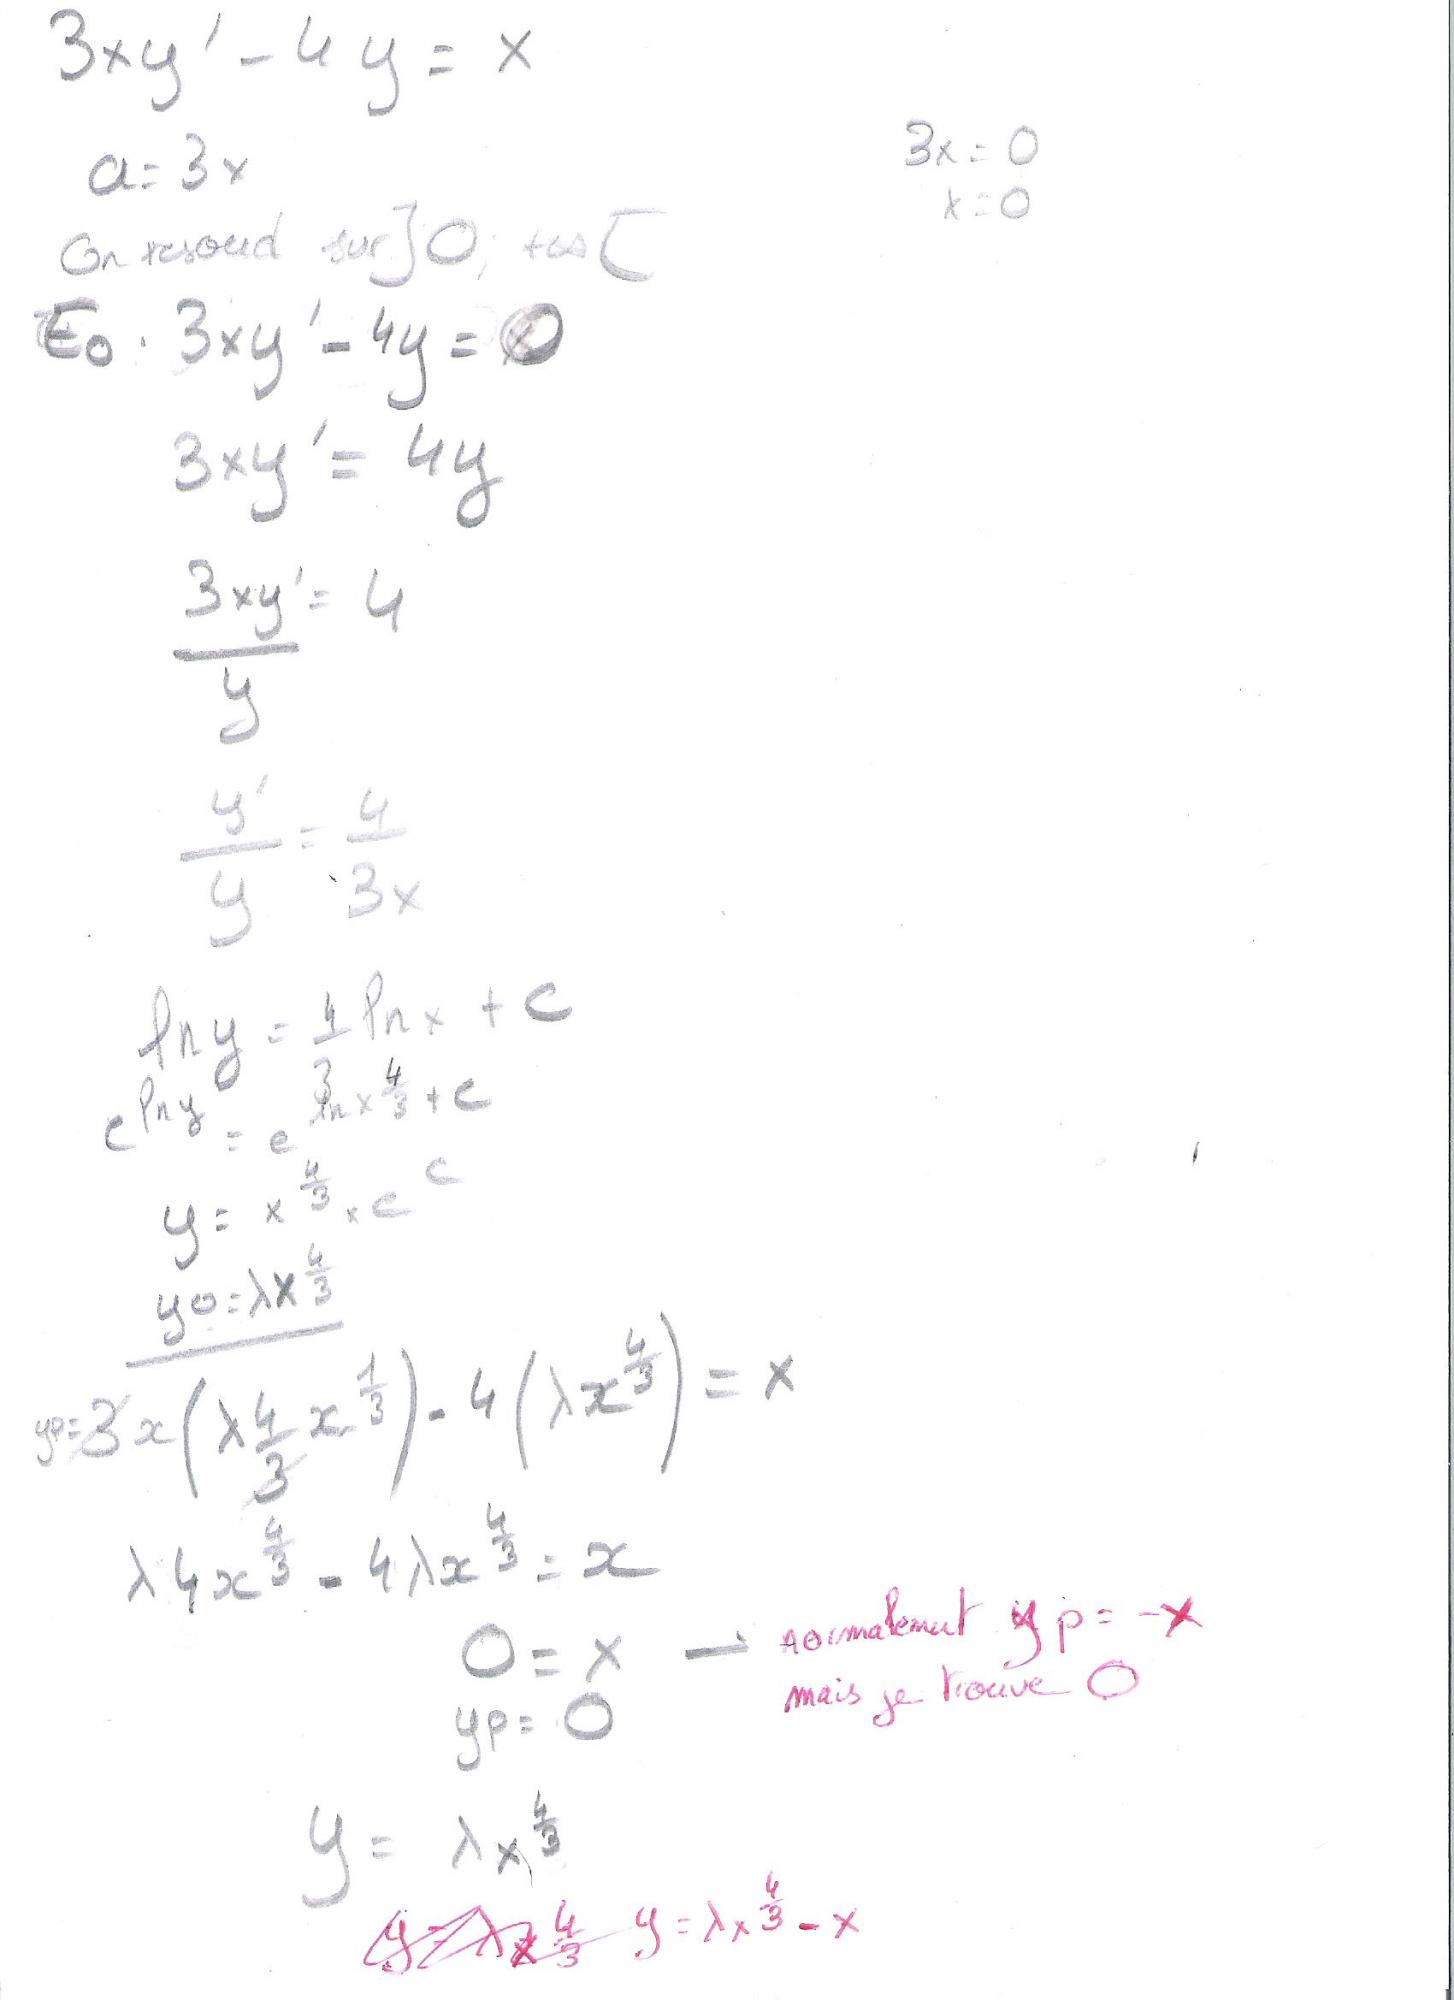 3xy' - 4y = x
a = 3x
3x = 0
x = 0
On resoud sur ]0; +∞[
E0. 3xy' - 4y = 0
3xy' = 4y
3xy'/y = 4
y'/y = 4/3x
ln y = 4/3 ln x + c
e^ln y = e^ln x^4/3 + c
y = x^4/3 × e^c
y0 = λx^4/3
yp = 3x(λ 4/3 x^1/3) - 4(λx^4/3) = x
λ4x^4/3 - 4λx^4/3 = x
0 = x — normalement yp = -x
mais je trouve 0
yp = 0
y = λx^4/3
y = λx^4/3 y = λx^4/3 - x